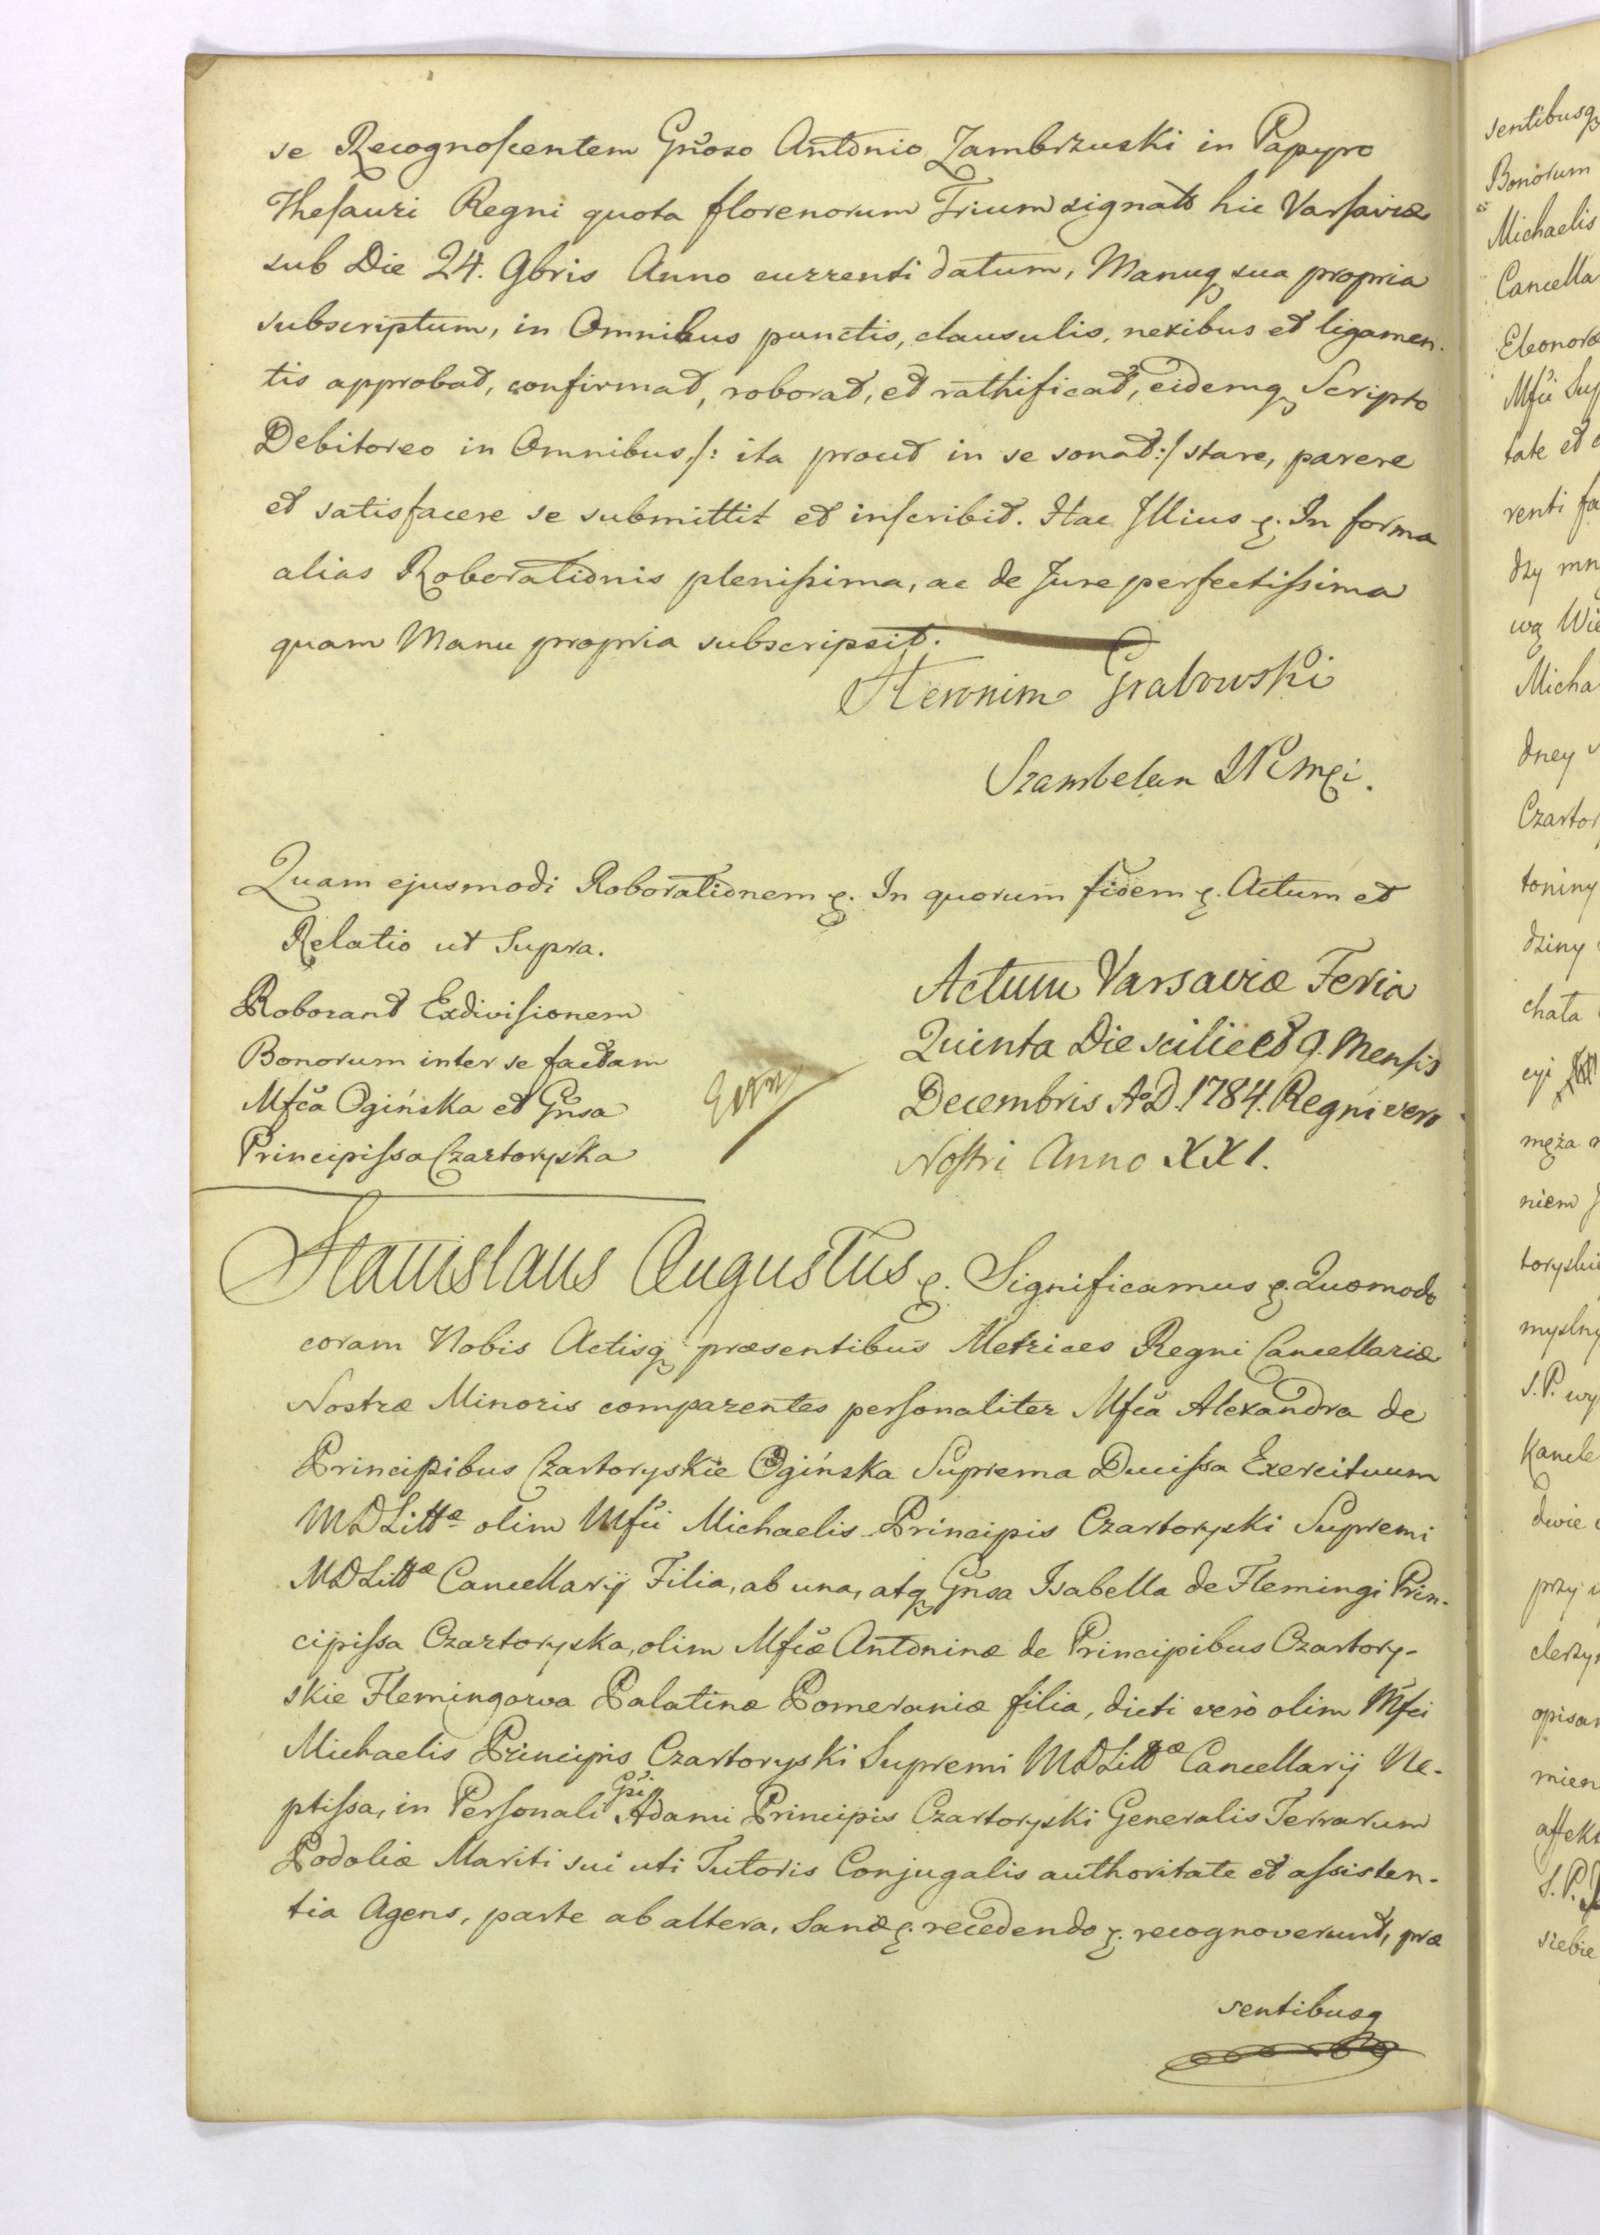 se Recognoscentem Gn̄oso Antonio Zambrzuski in Papyro
Thesauri Regni quota florenorum Trium signato hic Varsaviæ
sub Die 24. 9bris Anno currenti datum, Manuq̨ sua propria
subscriptum, in Omnibus punctis, clausulis, nexibus et ligamen-
tis approbat, confirmat, roborat, et rathificat, eidemq̨ Scripto
Debitoreo in Omnibus /: ita prout in se sonat :/ stare, parere
et satisfacere se submittit et inscribit. Hac Illius ę. In forma
alias Roborationis plenissima, ac de Jure perfectissima
quam Manu propria subscripsit.
Heronim Grabowski
Szambelan
Quam ejusmodi Roborationem ę. In quorum fidem ę. Actum et
Relatio ut Supra.
Roborant Exdivisionem
Bonorum inter se factam
Mfca Ogińska et Gn̄sa
Principissa Czartoryska
Actum Varsaviæ Feria
Quinta Die scilicet 9. Mensis
Decembris A.D. 1784. Regni vero
Nostri Anno XXI.
Stanislaus Augustus ę. Significamus ę. Quomodo
coram Nobis Actisq̨ præsentibus Metrices Regni Cancellariæ
Nostræ Minoris comparentes personaliter Mfca Alexandra de
Principibus Czartoryskie Ogińska Suprema Ducissa Exercituum
MDLittæ olim Mfci Michaelis Principis Czartoryski Supremi
MDLittæ Cancellarij Filia, ab una, atq̨ Gn̄sa Isabella de Flemingi Prin-
cipissa Czartoryska, olim Mfcæ Antoninæ de Principibus Czartory-
skie Flemingowa Palatinæ Pomeraniæ filia, dicti verò olim Mfci
Michaelis Principis Czartoryski Supremi MDLittæ Cancellarij Ne-
ptissa, in Personali Gsi Adami Principis Czartoryski Generalis Terrarum
Podoliæ Mariti sui uti Tutoris Conjugalis authoritate et assisten-
tia Agens, parte ab altera, Sanæ ę. recedendo ę. recognoverunt, præ
sentibusq
sentibusq̨
Bonorum
Michaelis
Cancella
Eleonoræ
Mfci Sup
tate et
renti fa
dzy mn
wą Wie
Micha
dney
Czartor
toniny
dziny
chata
cyi
męża
niem
toryskie
myslny
S.P. wy
Kancle
dwie
przy
clerzy
opisan
mien
affekt
S.P.
siebie